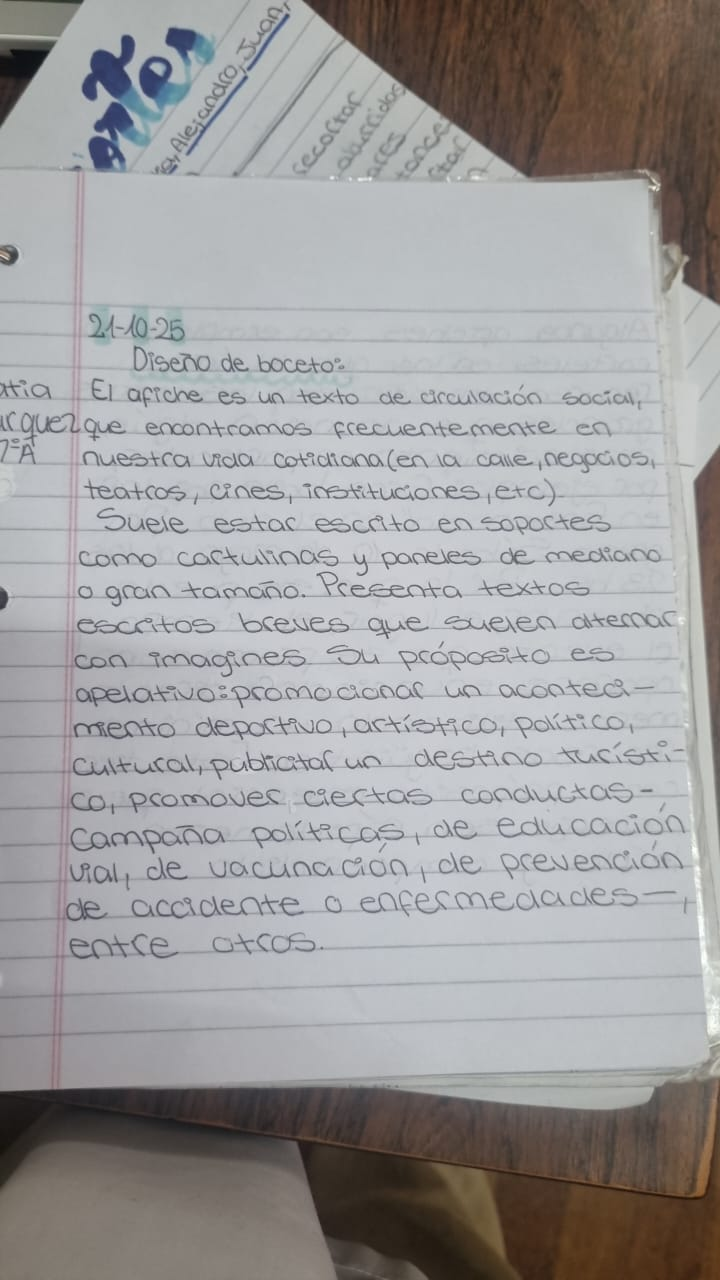 Alejandro, Juan,
recortar
aburridos
21-10-25
Diseño de boceto:
El afiche es un texto de circulación social,
que encontramos frecuentemente en
7°A
nuestra vida cotidiana (en la calle, negocios,
teatros, cines, instituciones, etc).
Suele estar escrito en soportes
como cartulinas y paneles de mediano
o gran tamaño. Presenta textos
escritos breves que suelen alternar
con imagines. Su próposito es
apelativo: promocionar un aconteci-
miento deportivo, artístico, político,
cultural, publicitar un destino turísti-
co, promover, ciertas conductas-
Campaña políticas, de educación
vial, de vacunación, de prevención
de accidente o enfermedades-,
entre otros.